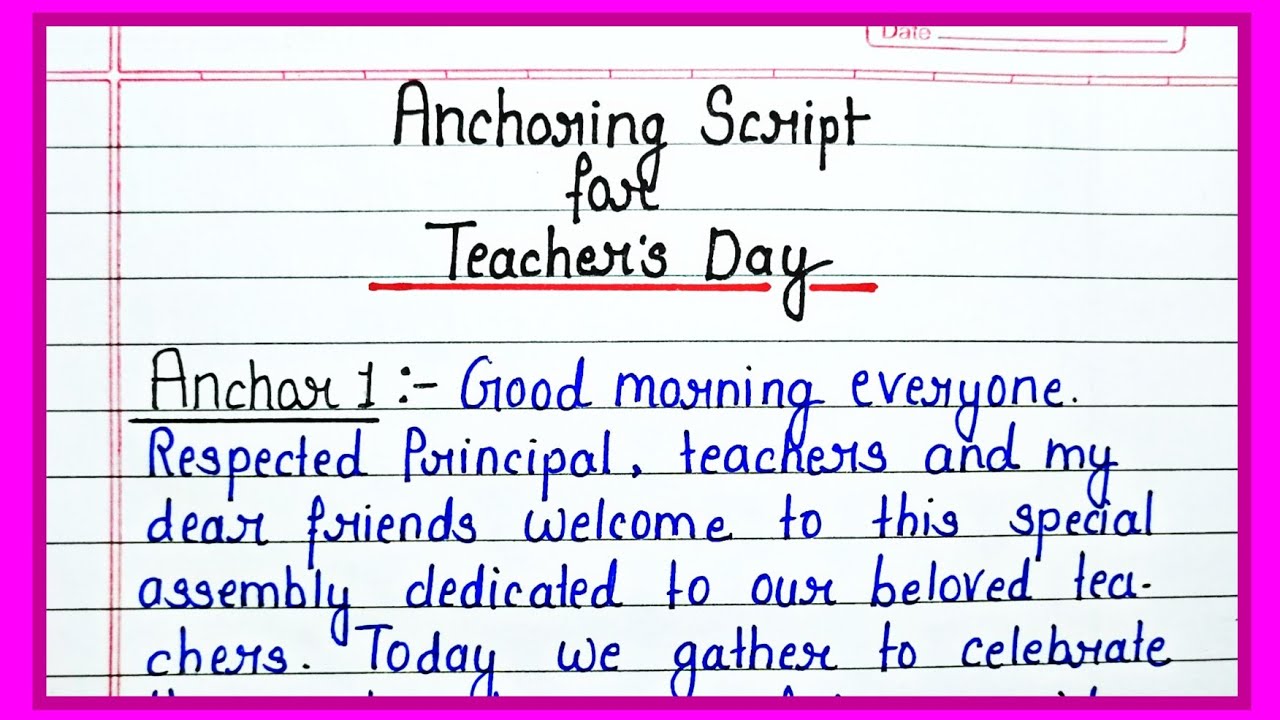 Date
Anchoring Script
for
Teacher's Day
Anchor 1 :- Good morning everyone.
Respected Principal, teachers and my
dear friends welcome to this special
assembly dedicated to our beloved tea-
chers. Today we gather to celebrate